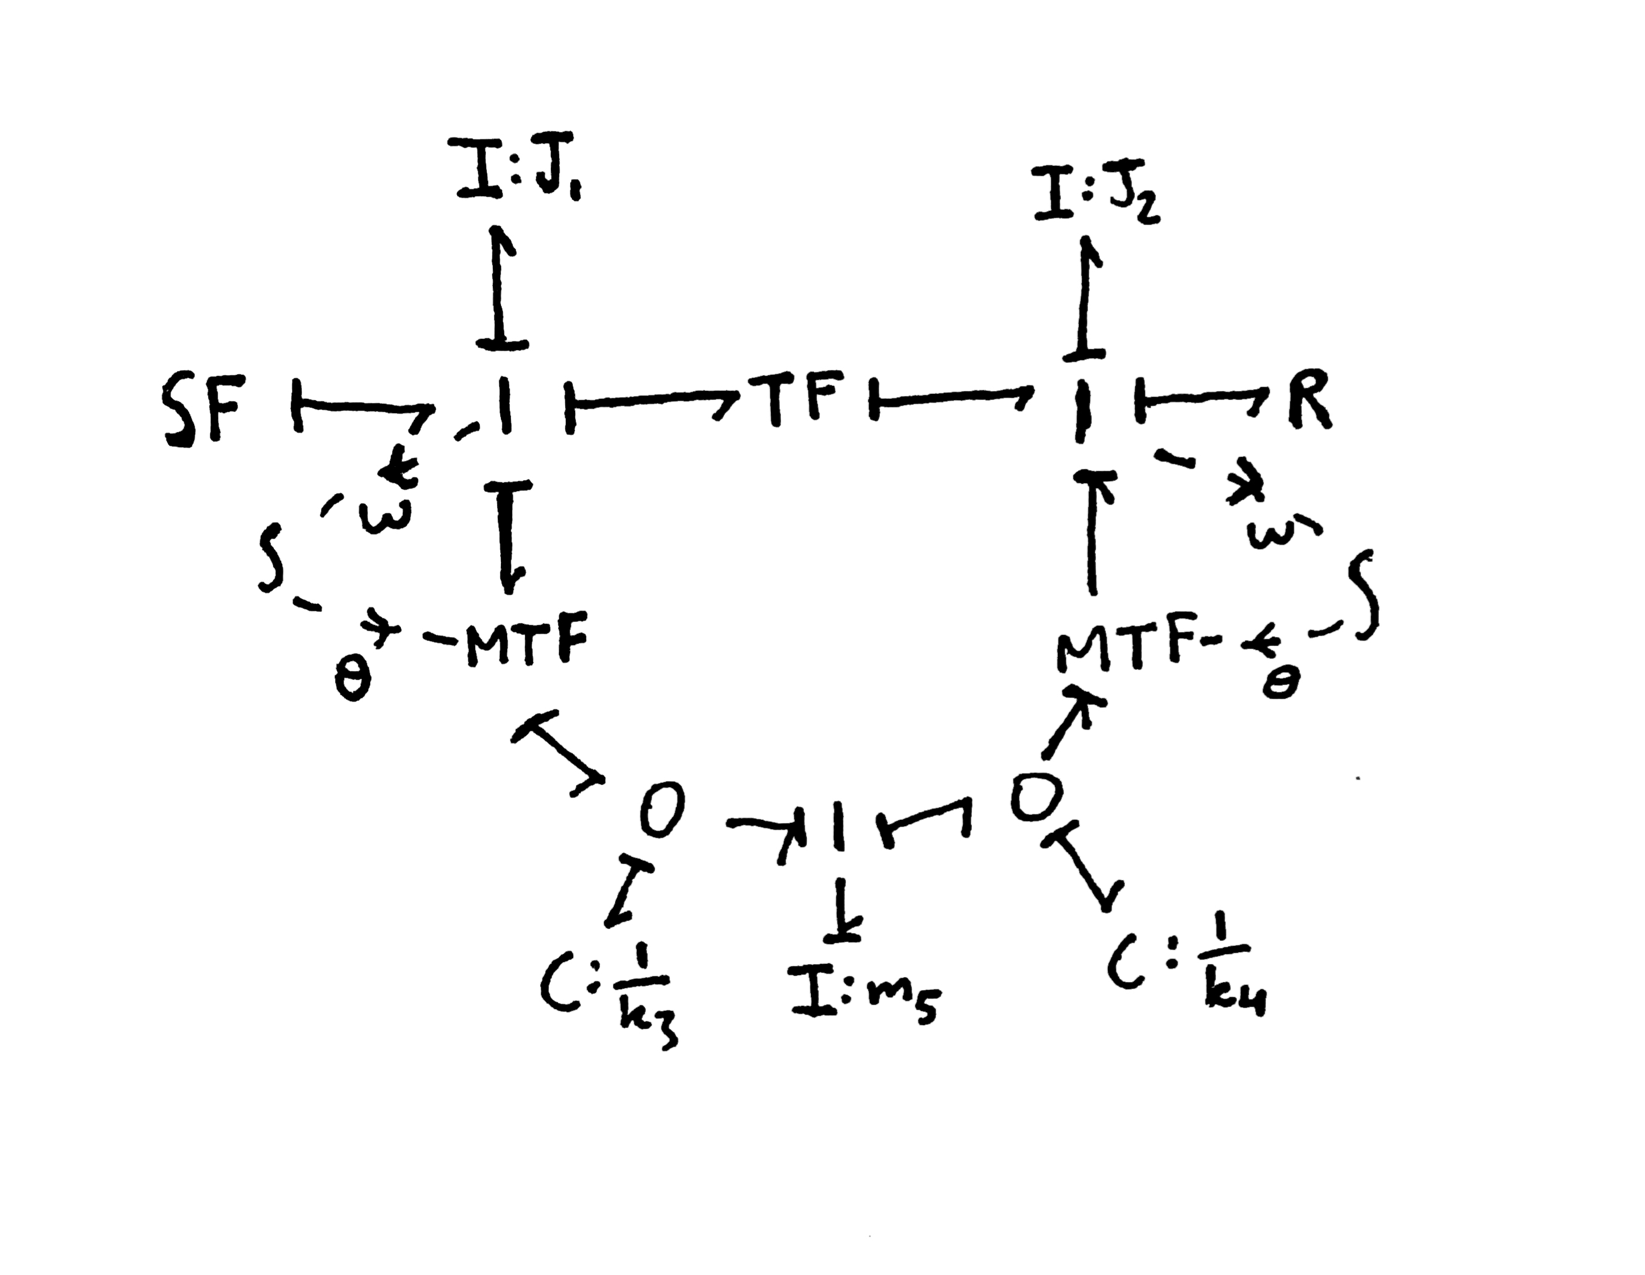 I:J₁ I:J₂
SF 1 TF 1 R
ω ω
∫ ∫
MTF MTF
θ θ
0 1 0
C:1/k₃ I:m₅ C:1/k₄